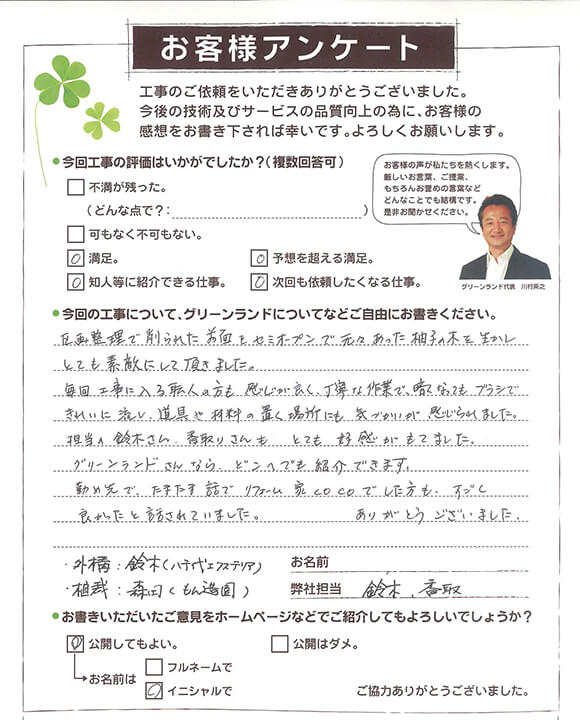 お客様アンケート
工事のご依頼をいただきありがとうございました。
今後の技術及びサービスの品質向上の為に、お客様の
感想をお書き下されば幸いです。よろしくお願いします。
●今回工事の評価はいかがでしたか？（複数回答可）
不満が残った。
（どんな点で？：）
可もなく不可もない。
満足。
予想を超える満足。
知人等に紹介できる仕事。
次回も依頼したくなる仕事。
お客様の声が私たちを熱くします。
厳しいお言葉、ご提案、
もちろんお誉めの言葉など
どんなことでも結構です。
是非お聞かせください。
グリーンランド代表 川村英之
●今回の工事について、グリーンランドについてなどご自由にお書きください。
区画整理で削られたお庭をセミオープンで元々あった柚子の木を生かし
とても素敵にして頂きました。
毎回工事に入る職人の方も感じが良く、丁寧な作業で、暗くなってもブラシで
きれいに流し、道具や材料の置く場所にも気づかいが感じられました。
担当の鈴木さん、香取りさんも とても好感がもてました。
グリーンランドさんなら、どこへでも紹介できます。
勤め先で、たまたま話でリフォーム家cocoでした方も、すごく
良かったと話されていました。 ありがとうございました。
・外構：鈴木（ハティヴェェクステリア）
お名前
・植栽：森田（もん造園）
弊社担当 鈴木、香取
●お書きいただいたご意見をホームページなどでご紹介してもよろしいでしょうか？
公開してもよい。
公開はダメ。
お名前は
フルネームで
イニシャルで
ご協力ありがとうございました。